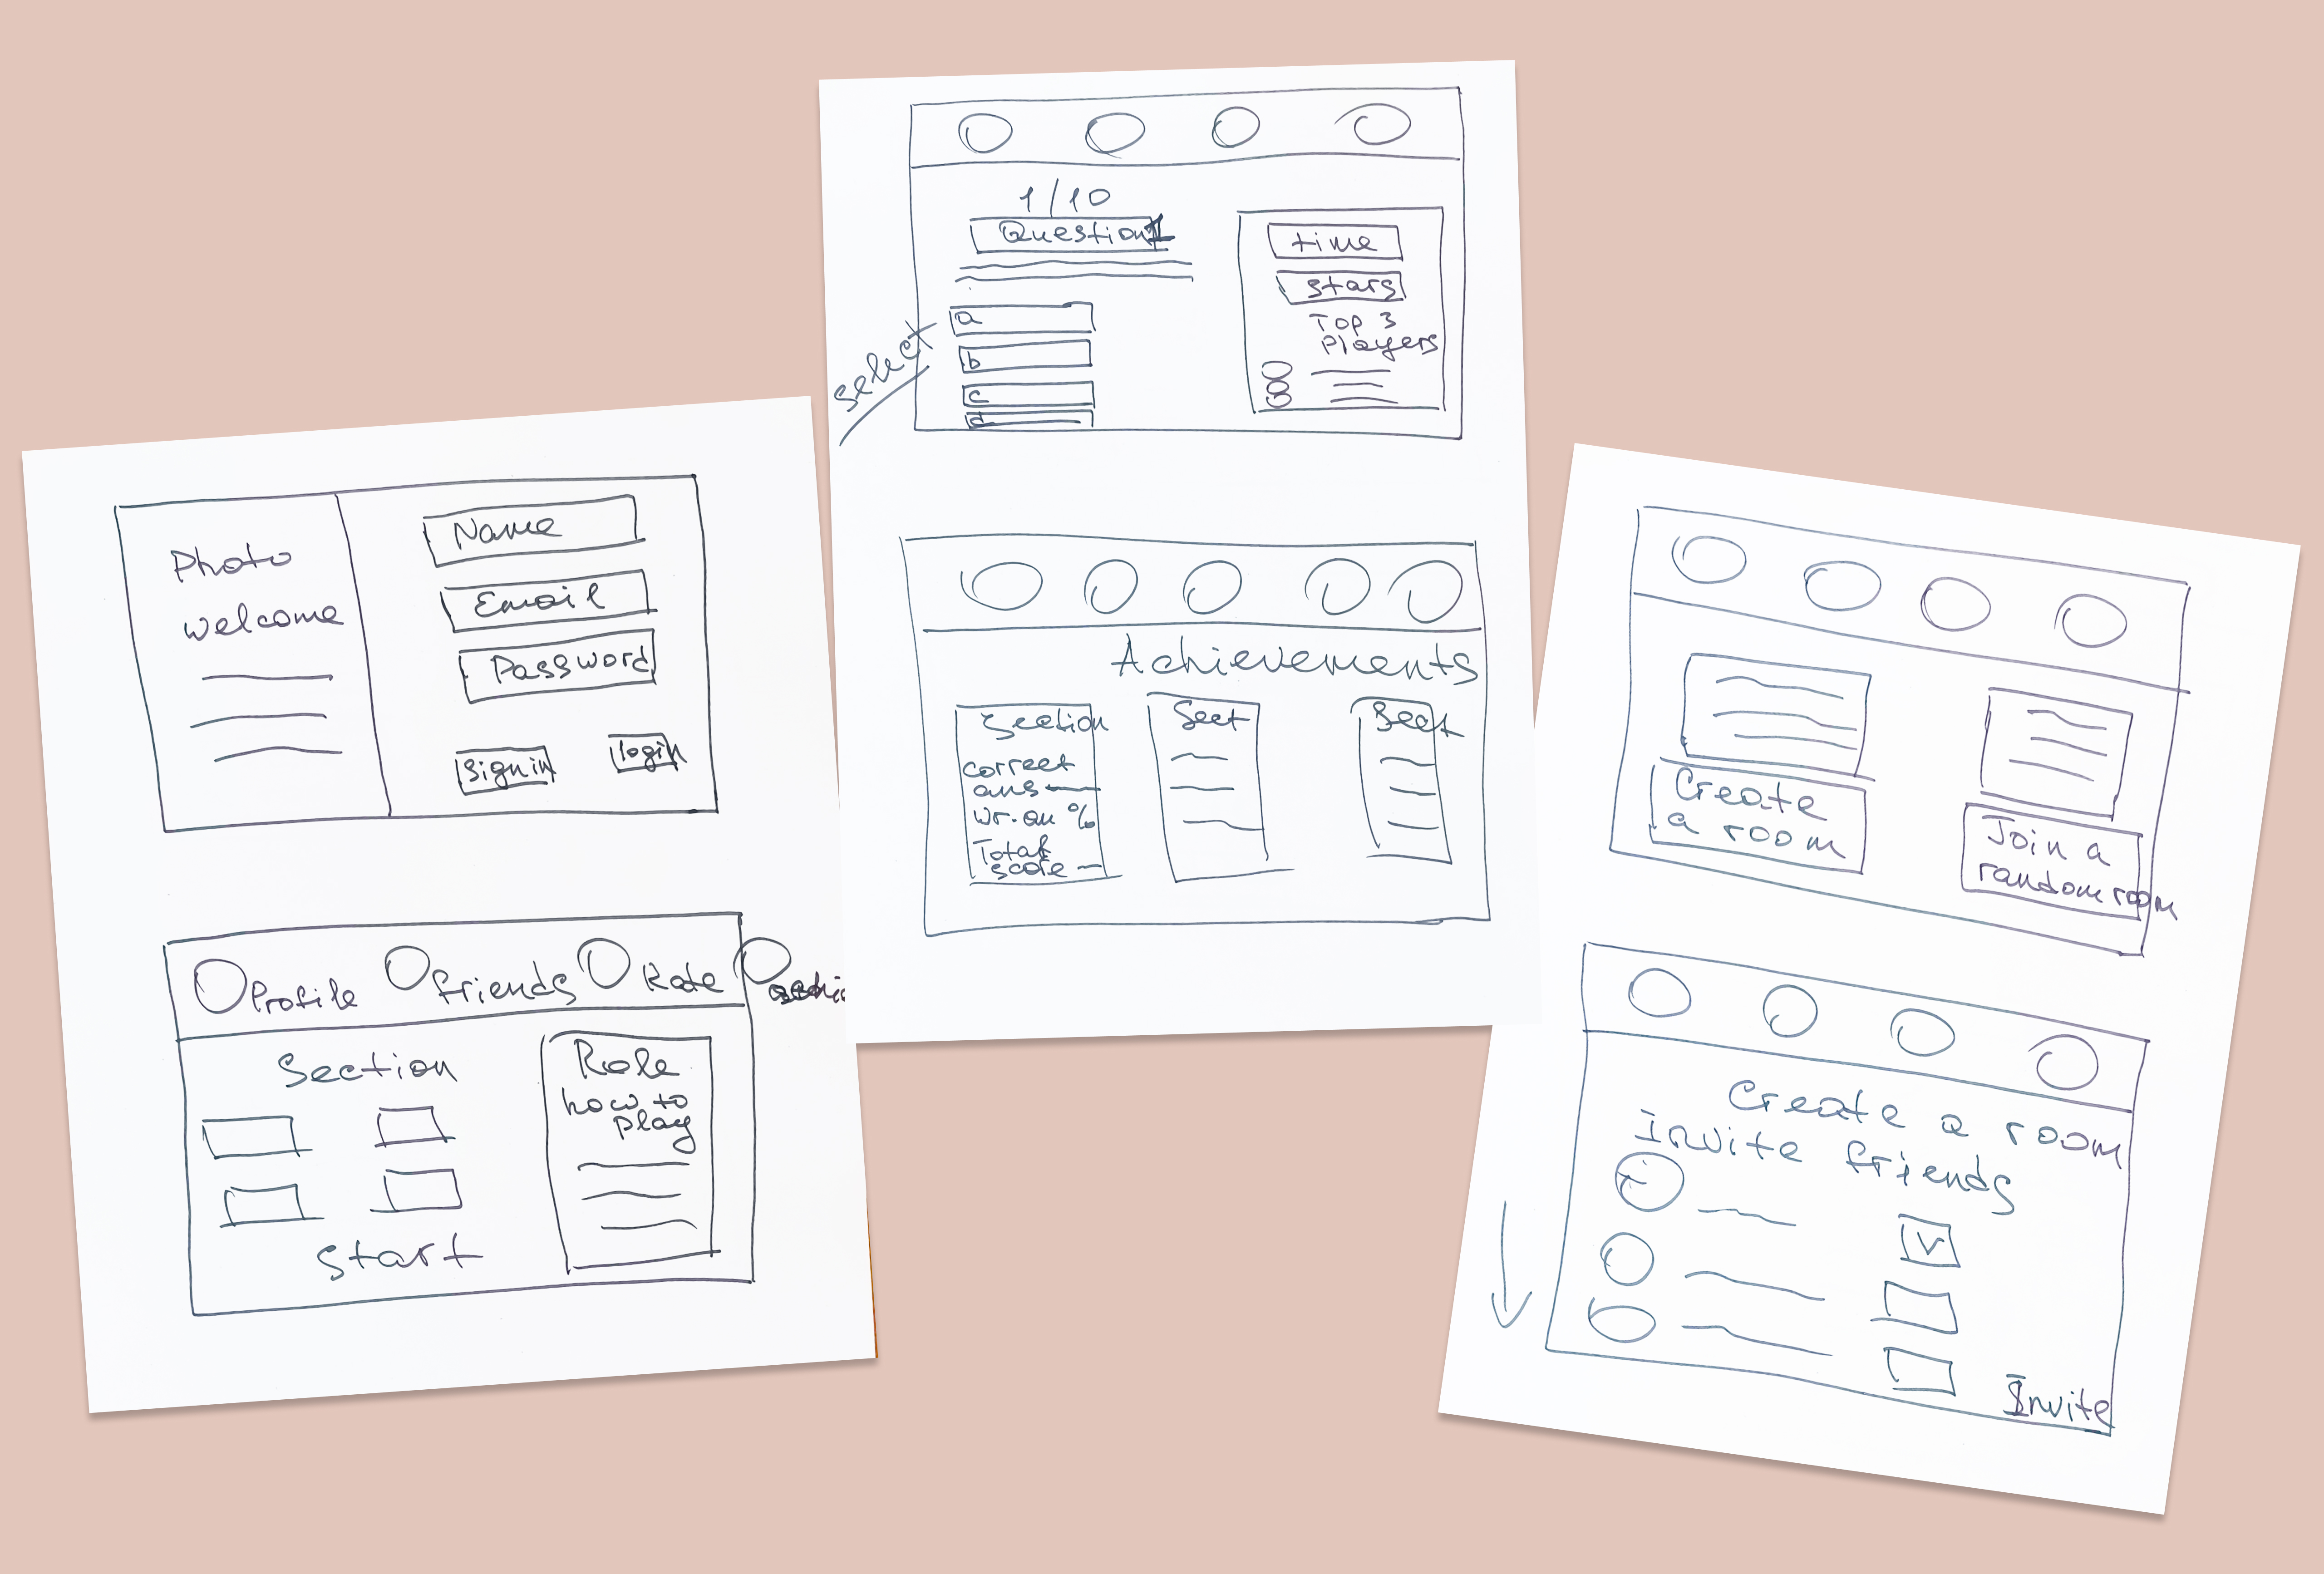 Photo
welcome
Name
Email
Password
Signin
login
Profile
friends
Rate
Section
Role
how to
play
Start
1/10
Question 1
select
a
b
c
d
time
stars
Top 3
Players
Achievements
Section
correct
ans
wr. an %
Total
score
Sect
Sect
Create
a room
Join a
random room
Create a room
Invite friends
Invite